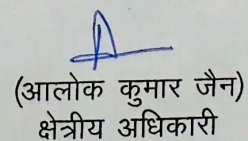 (आलोक कुमार जैन)
क्षेत्रीय अधिकारी